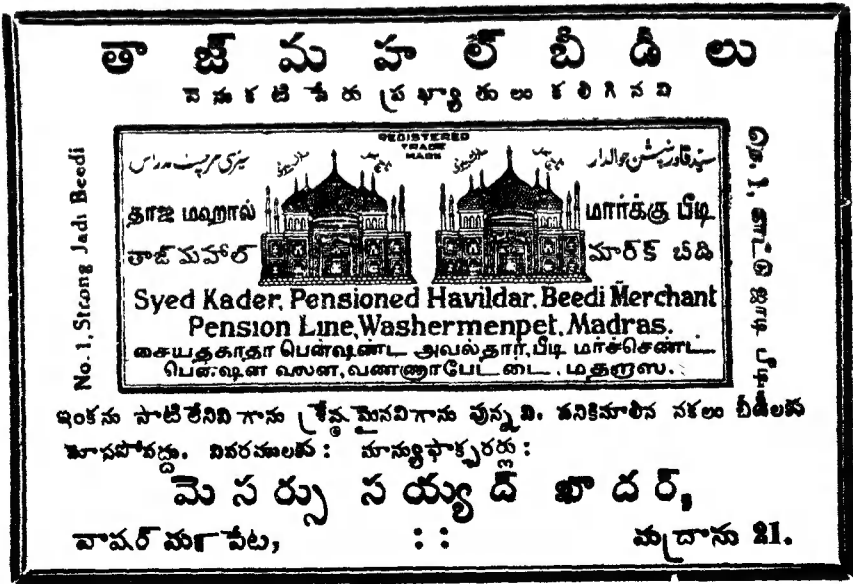 తాజ్ మహల్ బీడీలు
వెనుకటి పేరు ప్రఖ్యాతులు కలిగినవి
No. 1, Strong Jadi Beedi
REGISTERED
TRADE
MARK
தாஜ மஹால்
மார்க்கு பீடி
తాజ్ మహాల్
మార్క్ బీడి
Syed Kader, Pensioned Havildar, Beedi Merchant
Pension Line, Washermenpet, Madras.
சையதகாதா பென்ஷண்ட அவல்தார், பீடி மர்ச்செண்ட
பென்ஷன லைன, வண்ணாபேட்டை, மதறாஸ.
நெ. 1, காட்டு ஜாடி பீடி
ఇంకను సాటిలేనివిగాను శ్రేష్ఠమైనవిగాను వున్నవి. పనికిమాలిన నకలు బీడీలకు
మోసపోవద్దు. వివరములకు : మాన్యుఫాక్చరర్లు :
మెసర్సు సయ్యద్ ఖాదర్,
వాషర్ మన్ పేట, : : మద్రాసు 21.